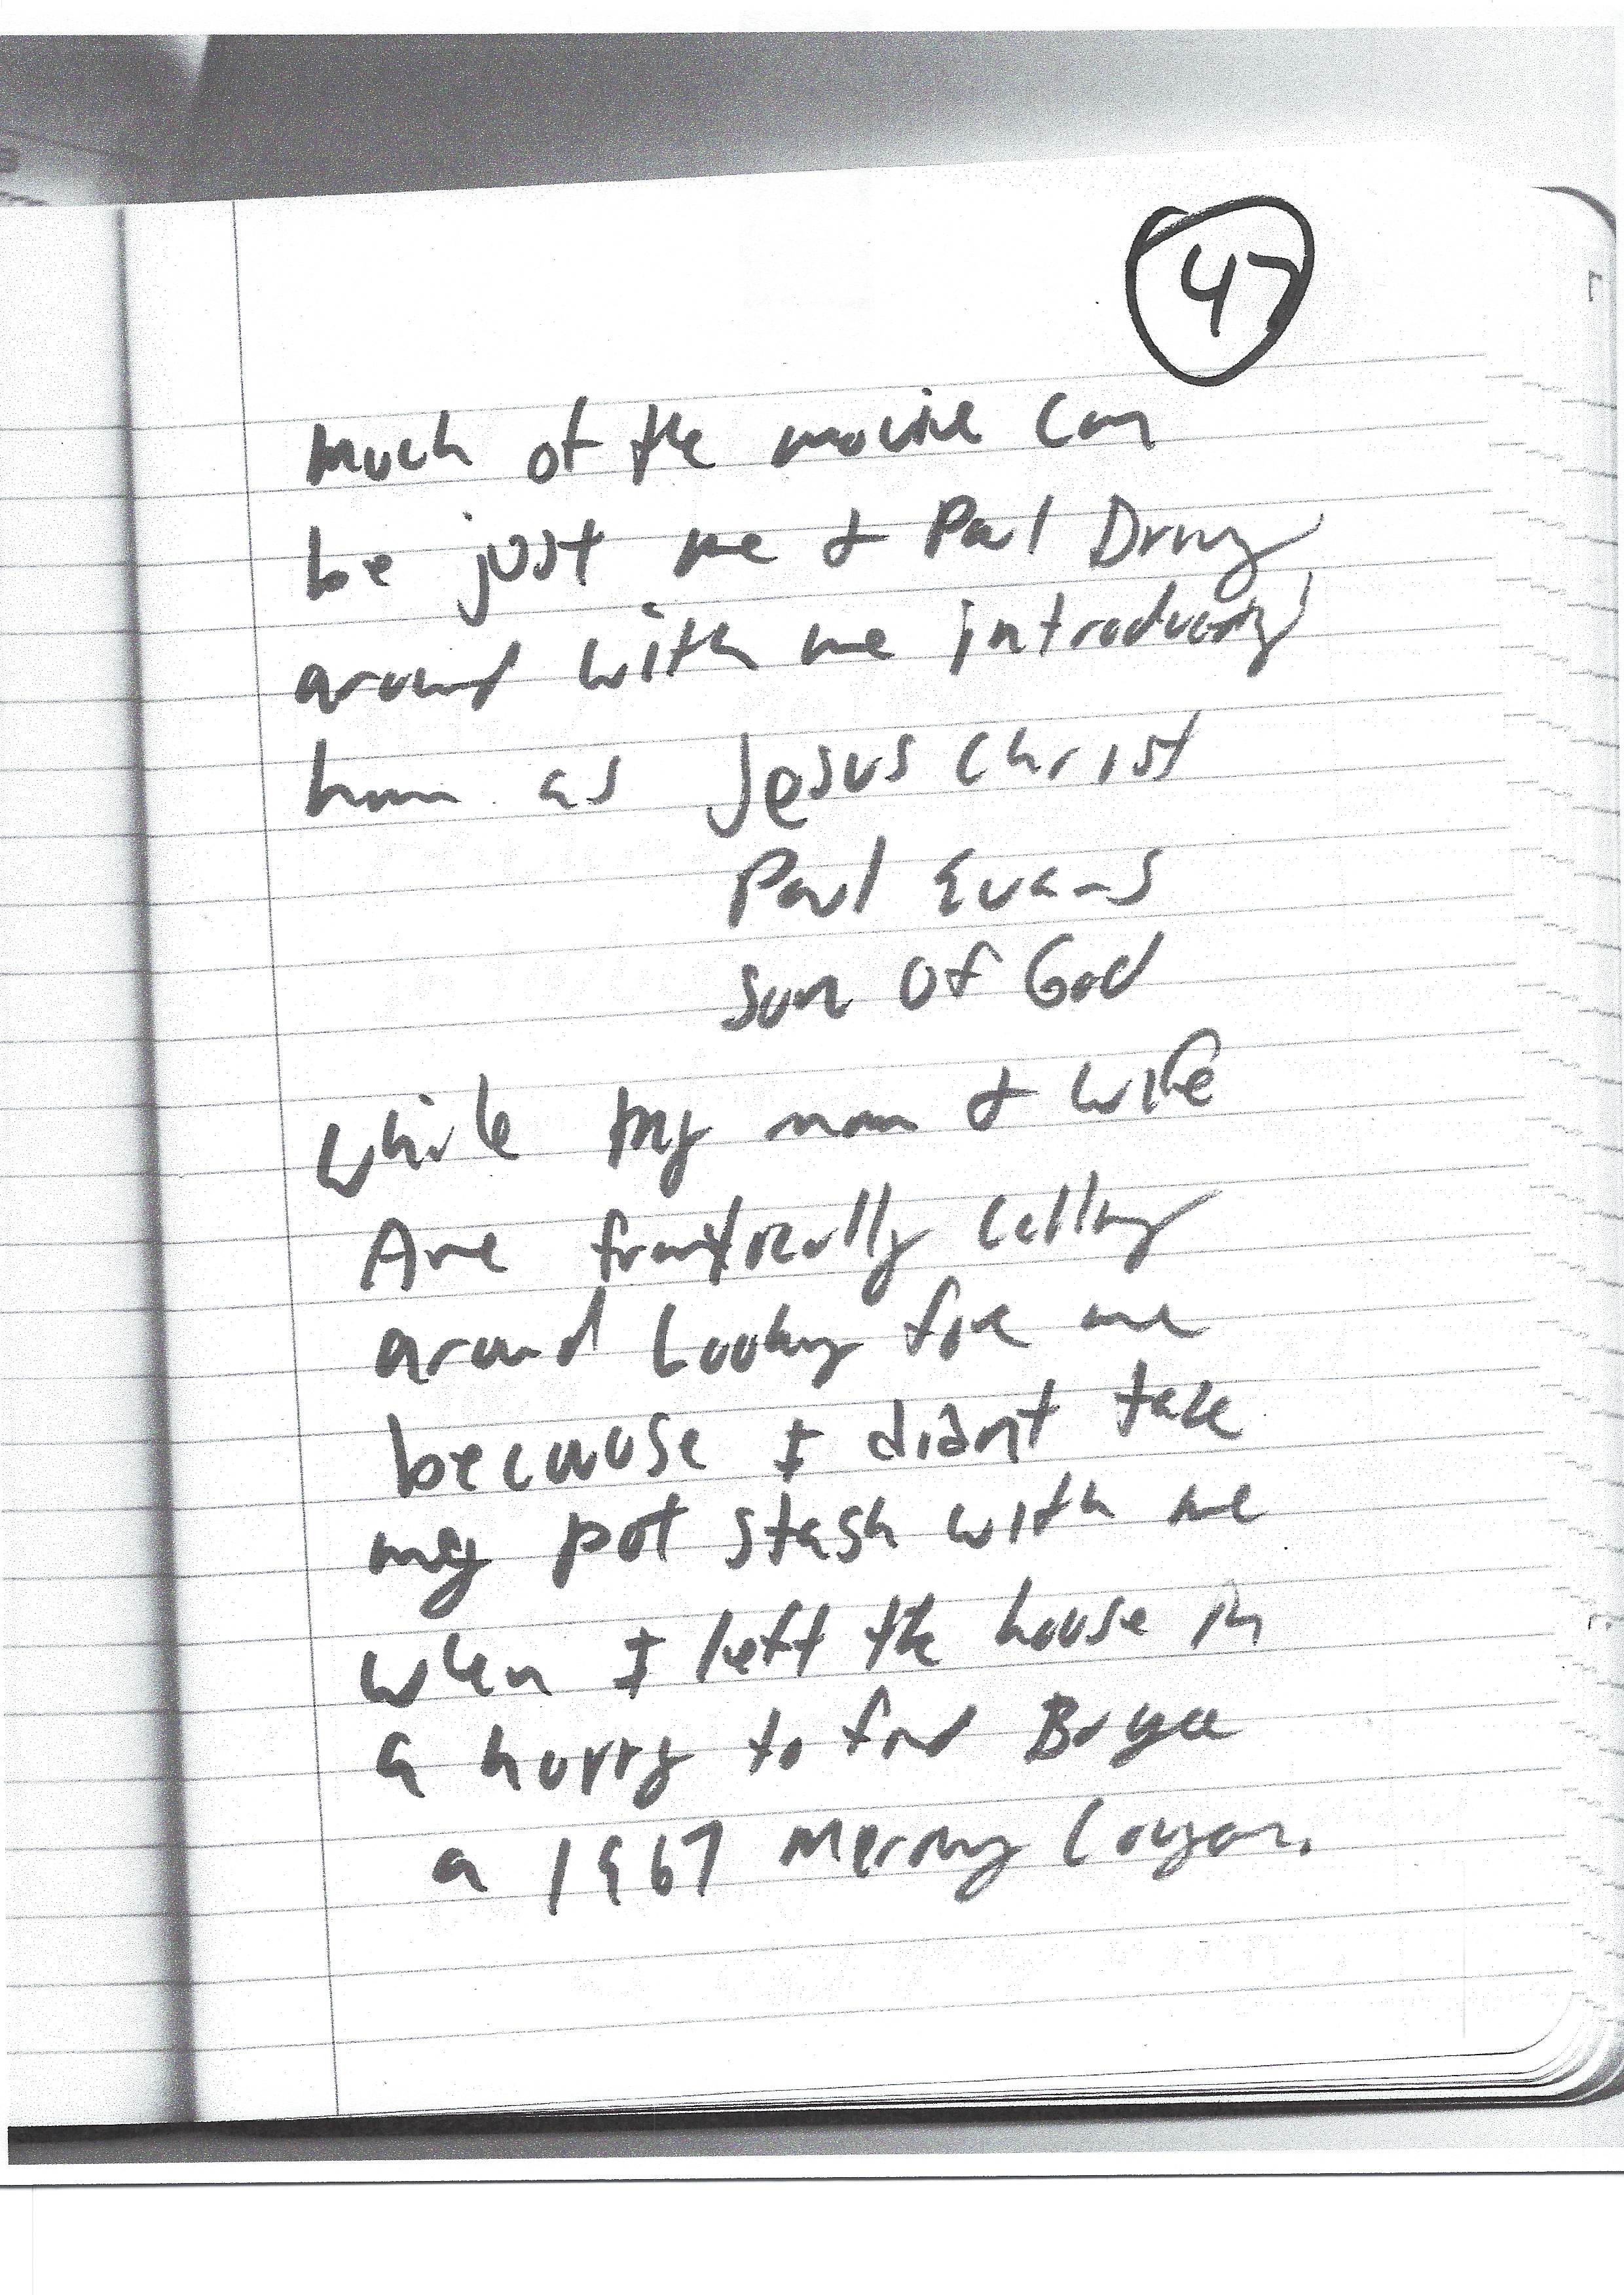 47
Much of the movie can
be just me & Paul Driving
around with me introducing
him as Jesus Christ
Paul Evans
Son Of God
While my mom & wife
Are frantically calling
around Looking for me
because I didnt take
my pot stash with me
when I left the house in
a hurry to find Boyce
a 1967 Mercury Cougar.